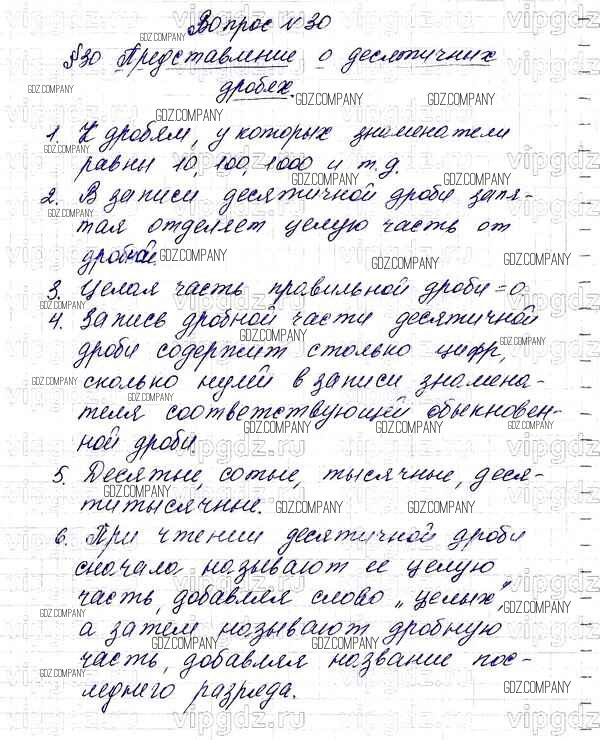 Вопрос №30
§30 Представление о десятичных
дробях.
1. К дробям, у которых знаменатели
равны 10, 100, 1000 и т.д.
2. В записи десятичной дроби запя-
тая отделяет целую часть от
дробной.
3. Целая часть правильной дроби = 0.
4. Запись дробной части десятичной
дроби содержит столько цифр,
сколько нулей в записи знамена-
теля соответствующей обыкновен-
ной дроби.
5. Десятые, сотые, тысячные, деся-
титысячные.
6. При чтении десятичной дроби
сначала называют её целую
часть, добавляя слово „целых",
а затем называют дробную
часть, добавляя название пос-
леднего разряда.
GDZ.COMPANY
vipgdz.ru